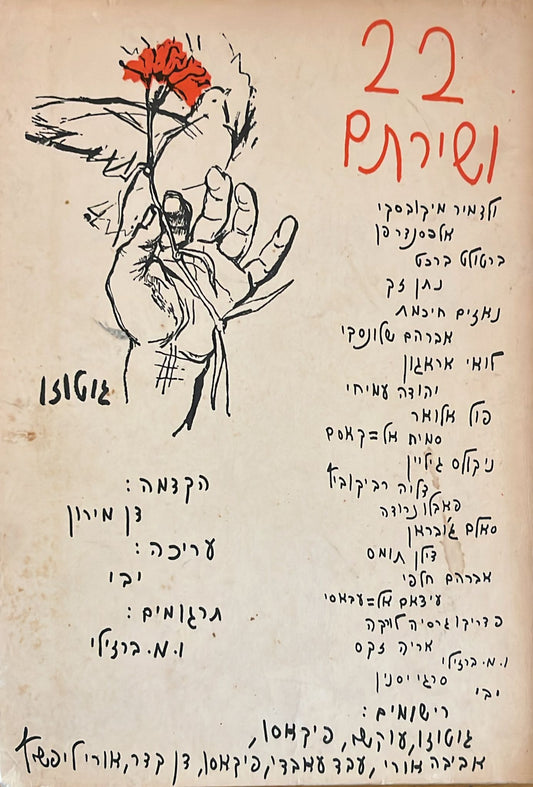 22
ושירתם
ולדמיר מיקובסקי
אלכסנדר פן
ברטולט ברכט
נתן זך
נאזים חיכמת
אברהם שלונסקי
לואי אראגון
יהודה עמיחי
פול אלואר
סמיח אל=קאסם
ניקולס גיליין
דליה רביקוביץ
פאבלו נרודה
סאלם ג'ובראן
דילן תומס
אברהם חלפי
עיצאם אל=עבאסי
פדריקו גרסיה לורקה
אריה זקס
ו.מ. ברזילי
סרגי יסנין
יבי
רישומים:
גוטוזו, עוקשי, פיקאסו,
אביבה אורי, עבד עאבדי, פיקאסו, דן קדר, אורי ליפשיץ
גוטוזו
הקדמה:
דן מירון
עריכה:
יבי
תרגומים:
ו.מ. ברזילי